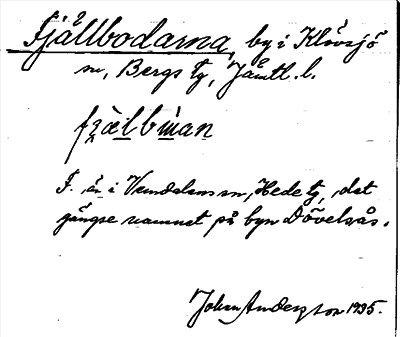 Fjållbodarna, by i Klövsjö
sn, Bergs tg, Jämtl. l.
fjællbman
F. än i Vemdalens sn, Hede tg, det
gängse namnet på byn Dövelsås.
Johan Anderson 1935.